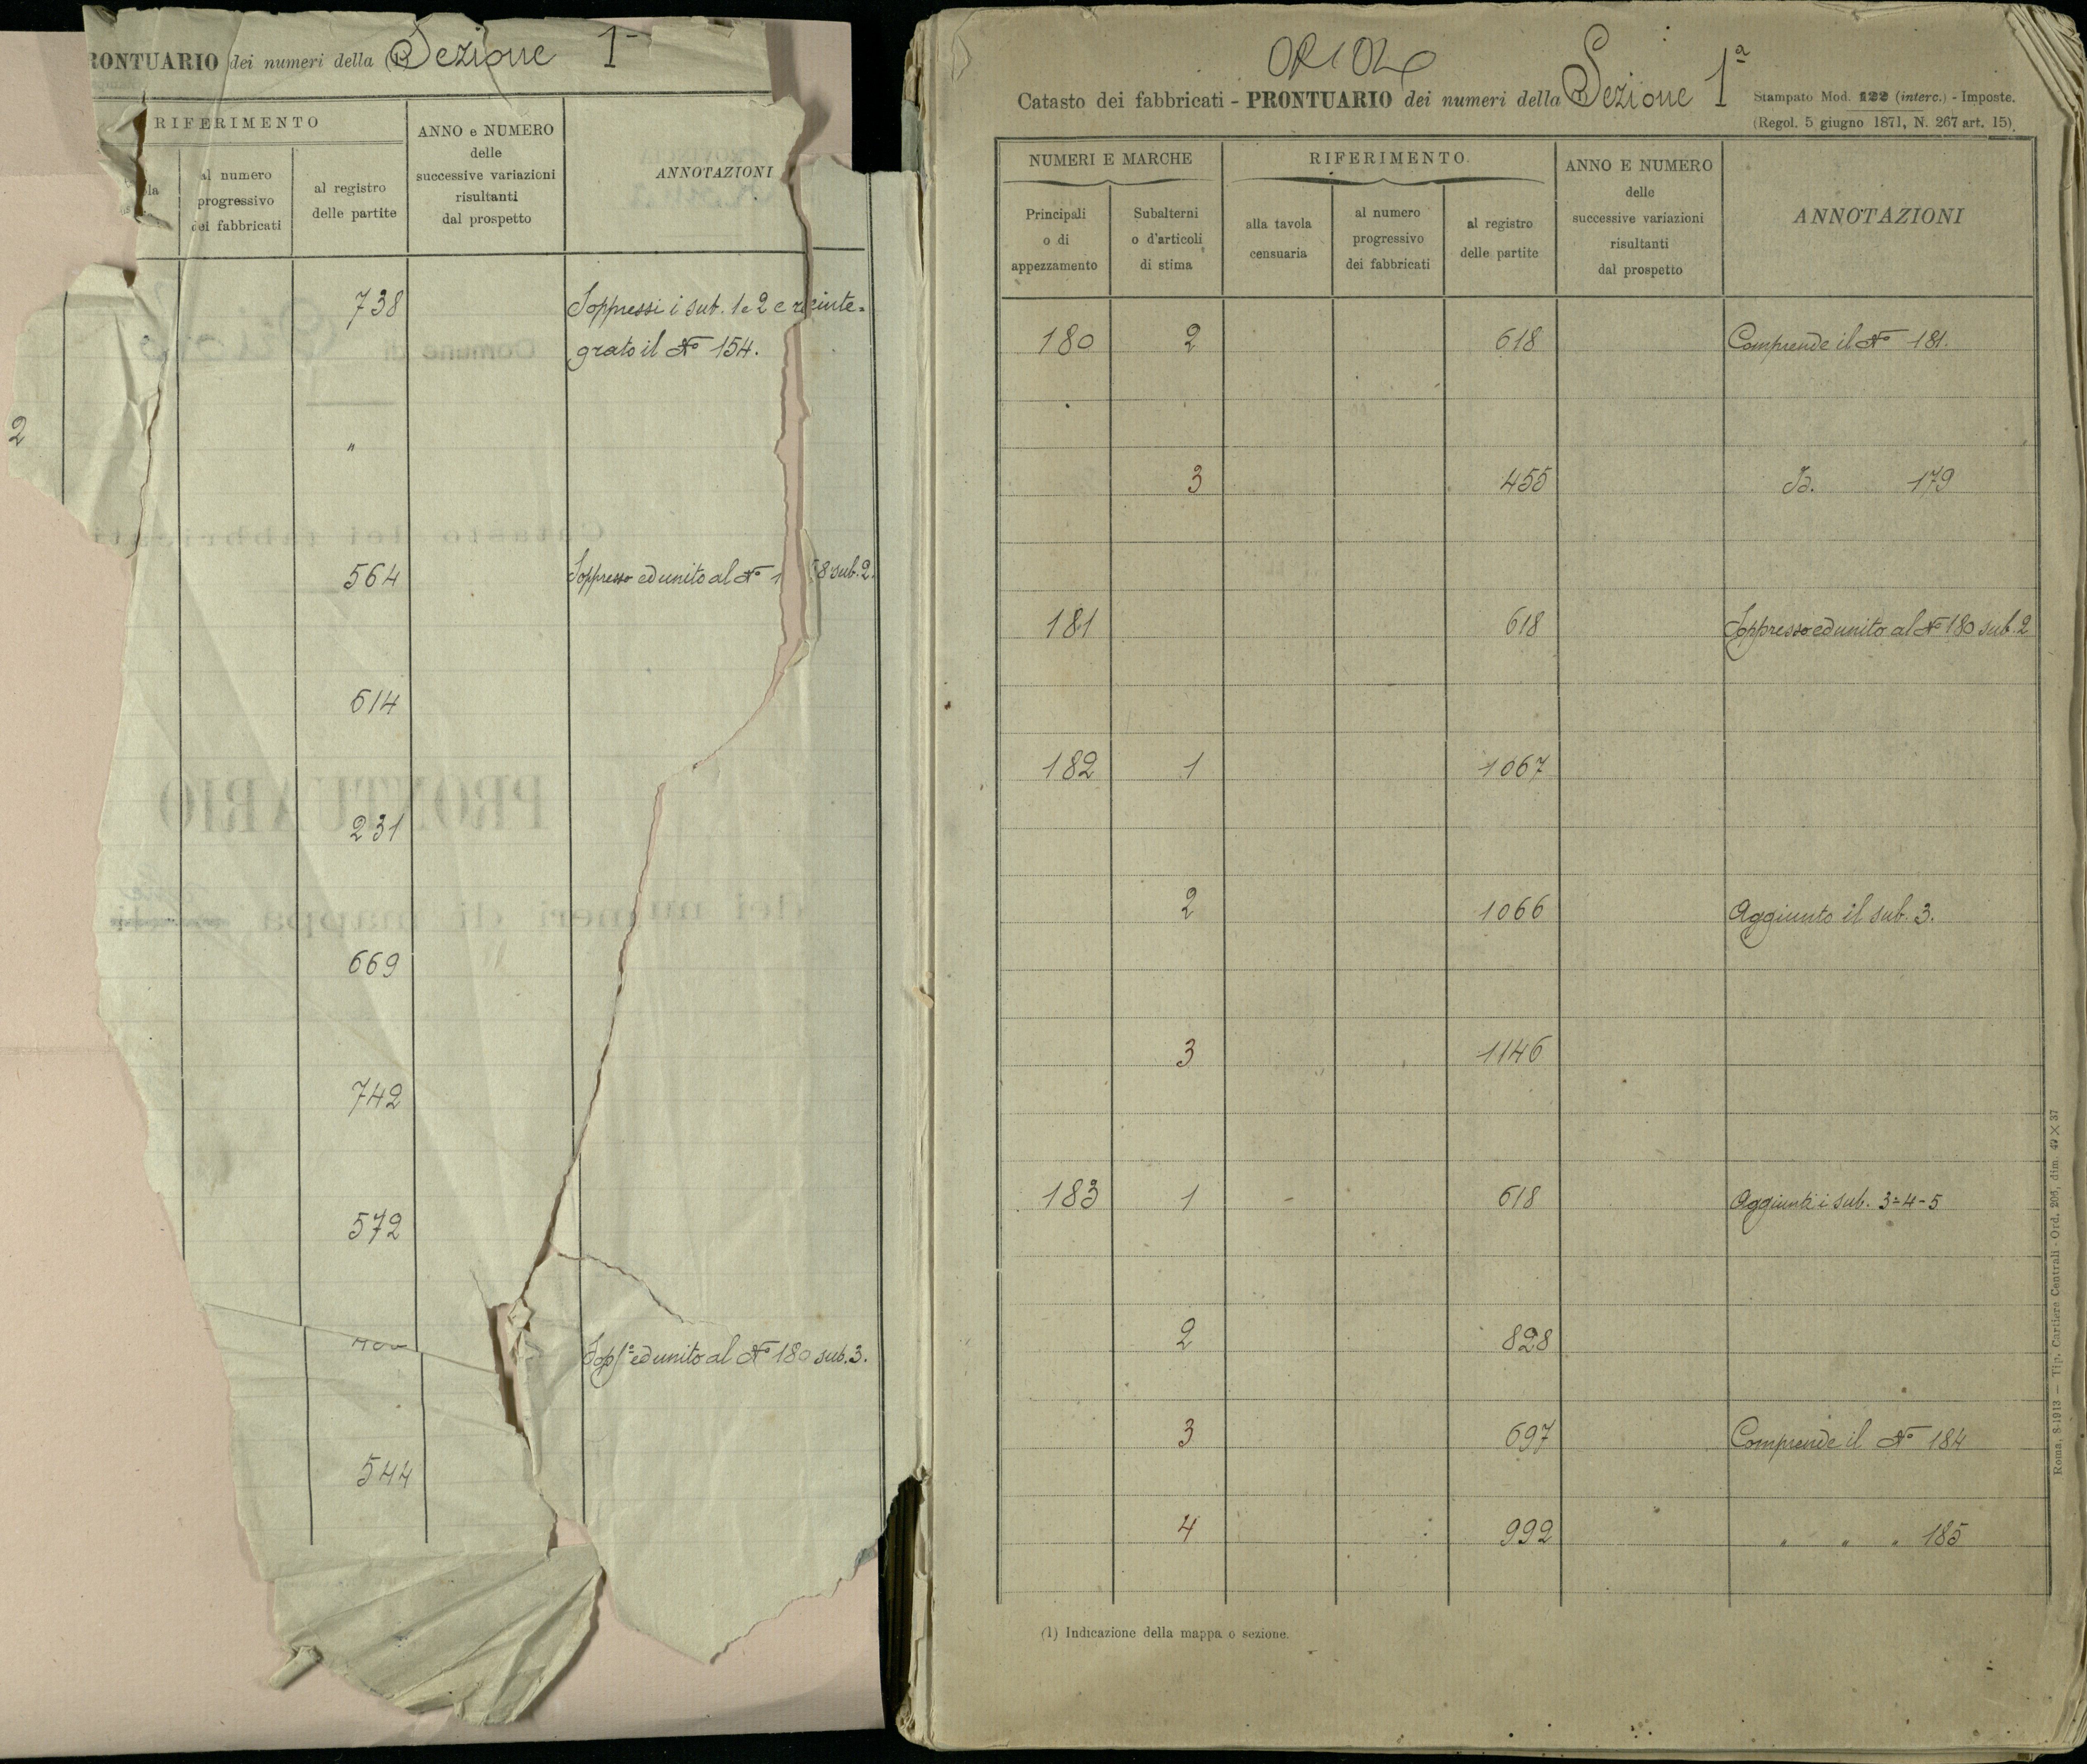 RONTUARIO dei numeri della (1) Sezione 1
RIFERIMENTO
ANNO e NUMERO
delle
successive variazioni
risultanti
dal prospetto
ANNOTAZIONI
al numero
progressivo
dei fabbricati
al registro
delle partite
738 Soppressi i sub. 1 e 2 e reinte=
grato il No 154.
2
"
564 Soppresso ed unito al No 158 sub. 2.
614
231
669
742
572
Sopp.o ed unito al No 180 sub. 3.
544
ORIOLO
Catasto dei fabbricati - PRONTUARIO dei numeri della (1) Sezione 1a
Stampato Mod. 122 (interc.) - Imposte.
(Regol. 5 giugno 1871, N. 267 art. 15).
NUMERI E MARCHE
RIFERIMENTO.
ANNO E NUMERO
delle
successive variazioni
risultanti
dal prospetto
ANNOTAZIONI
Principali
o di
appezzamento
Subalterni
o d'articoli
di stima
alla tavola
censuaria
al numero
progressivo
dei fabbricati
al registro
delle partite
180 2 618 Comprende il No 181.
3 455 Id. 179
181 618 Soppresso ed unito al No 180 sub. 2
182 1 1067
2 1066 Aggiunto il sub. 3.
3 1146
183 1 618 Aggiunti i sub. 3-4-5
2 828
3 697 Comprende il No 184
4 992 " " " 185
(1) Indicazione della mappa o sezione.
Roma, 8-1913 — Tip. Cartiere Centrali - Ord. 206, dim. 49 × 37